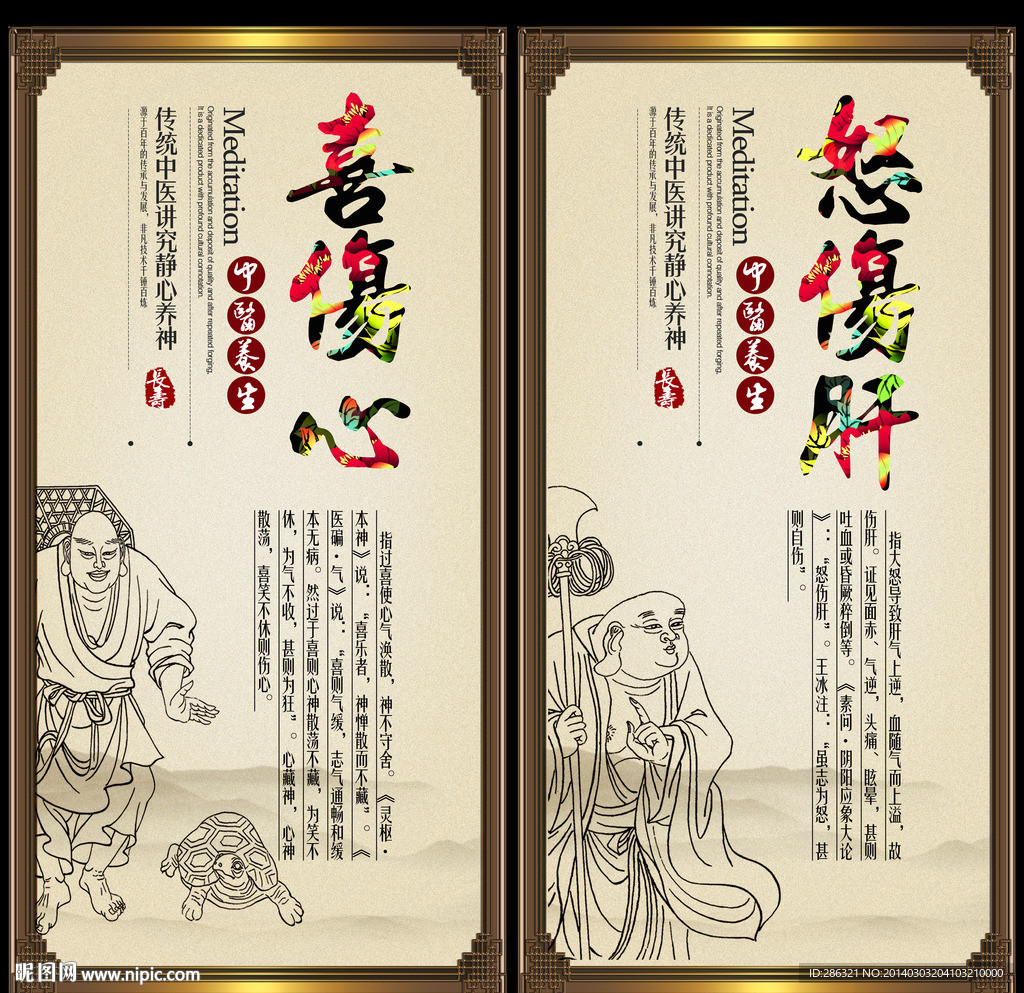 喜傷心
中醫養生
Meditation
Originated from the accumulation and deposit of quality and after repeated forging,
It is a dedicated product with profound cultural connotation.
传统中医讲究静心养神
長壽
源于百年的传承与发展，非凡技术千锤百炼
指过喜使心气涣散，神不守舍。《灵枢·
本神》说：“喜乐者，神惮散而不藏”。《
医碥·气》说：“喜则气缓，志气通畅和缓
本无病。然过于喜则心神散荡不藏，为笑不
休，为气不收，甚则为狂”。心藏神，心神
散荡，喜笑不休则伤心。
怒傷肝
中醫養生
Meditation
Originated from the accumulation and deposit of quality and after repeated forging,
It is a dedicated product with profound cultural connotation.
传统中医讲究静心养神
長壽
源于百年的传承与发展，非凡技术千锤百炼
指大怒导致肝气上逆，血随气而上溢，故
伤肝。证见面赤、气逆，头痛、眩晕，甚则
吐血或昏厥猝倒等。《素问·阴阳应象大论
》：“怒伤肝”。王冰注：“虽志为怒，甚
则自伤”。
昵图网 www.nipic.com
ID:286321 NO:20140303204103210000